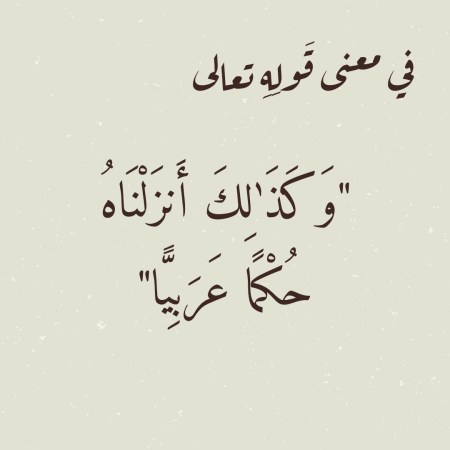 في معنى قَولِهِ تعالى
"وَكَذَٰلِكَ أَنزَلْنَاهُ
حُكْمًا عَرَبِيًّا"